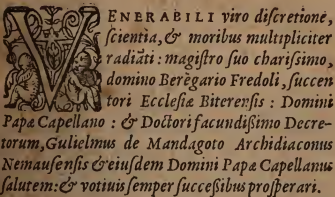 VENERABILI viro discretione,
scientia, & moribus multipliciter
radiãti: magistro suo charissimo,
domino Berẽgario Fredoli, succen
tori Ecclesiæ Biterensis: Domini
Papæ Capellano: & Doctori facundissimo Decre-
torum, Gulielmus de Mandagoto Archidiaconus
Nemausensis & eiusdem Domini Papæ Capellanus
salutem: & votiuis semper successibus prosperari.